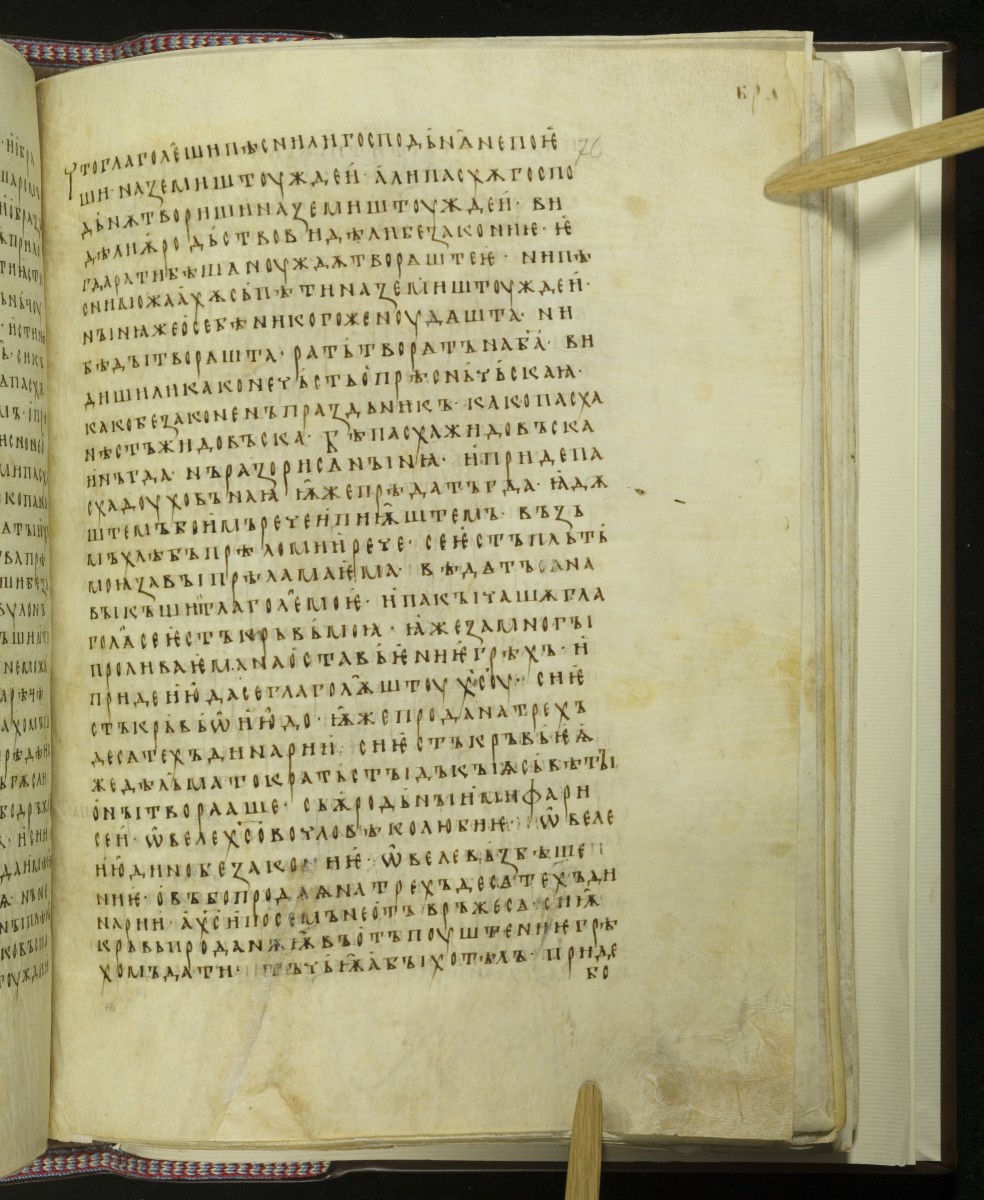 бра
76
чтоглаголѥшипѣснилигосподьнѧнепоѥ
ши· наземиштоуждеи· алипасхѫгоспо
дьнѫтворишиназемиштоуждеи· ви
дѣлиѫродьствовидѣлибезаконие· ѥ
гдаратибѣшаноуждѫтворѧштеѥ· нипѣ
сниможаахѫсѧпѣтиназемиштоуждеи·
нꙑнꙗжеосебѣникогоженоудѧшта· ни
бѣдꙑтворѧшта· ратьтворѧтънаба҃· ви
дишиликаконечьстьопрѣсньчьскаꙗ·
какобезаконенъпраздьникъ· какопасха
нѣстъжидовъска· бѣпасхажидовъска
инъгда· нъразорисѧнꙑнꙗ· ипридепа
схадоуховънаꙗ ѭжепрѣдатъгда· ꙗдѫ
штемъбоимъречеипиѭштемъ· възъ
мъхлѣбъпрѣломиирече· сеѥстъплъть
моꙗзавꙑпрѣламаѥма· вѣдѧтъсѧна
выкъшиигла­голѥмоѥ· ипакꙑчашѫгла
голѧсеѥстъкръвьмоꙗ· ꙗжезамногꙑ
проливаѥманаоставьѥниѥгрѣхъ· и
придеиюдасеглаголѭштоух҃соу· сиѥ
стъкръвьѡиюдо· ѭжепроданатрехъ
десѧтехъдинарии· сиѥстъкръвьѥѩ
жедѣльматократьстꙑдъкꙑѩсъвѣтꙑ
онꙑтворѧаше· съѫродьнꙑимифари
сеи· ѡвелех҃совоуловѣколюбиѥ· ѡвеле
июдинобезакониѥ· ѡвелевьзбѣше
ниѥ· овъбопродаѧнатрехъдесѧтехъди
нарии· ах҃сипосемънеотъвръжесѧ· сиѭ
кръвьпроданѫѭвъотъпоуштениѥгрѣ
хомъдати· тъчьѭабꙑхотѣлъ· приде
бо